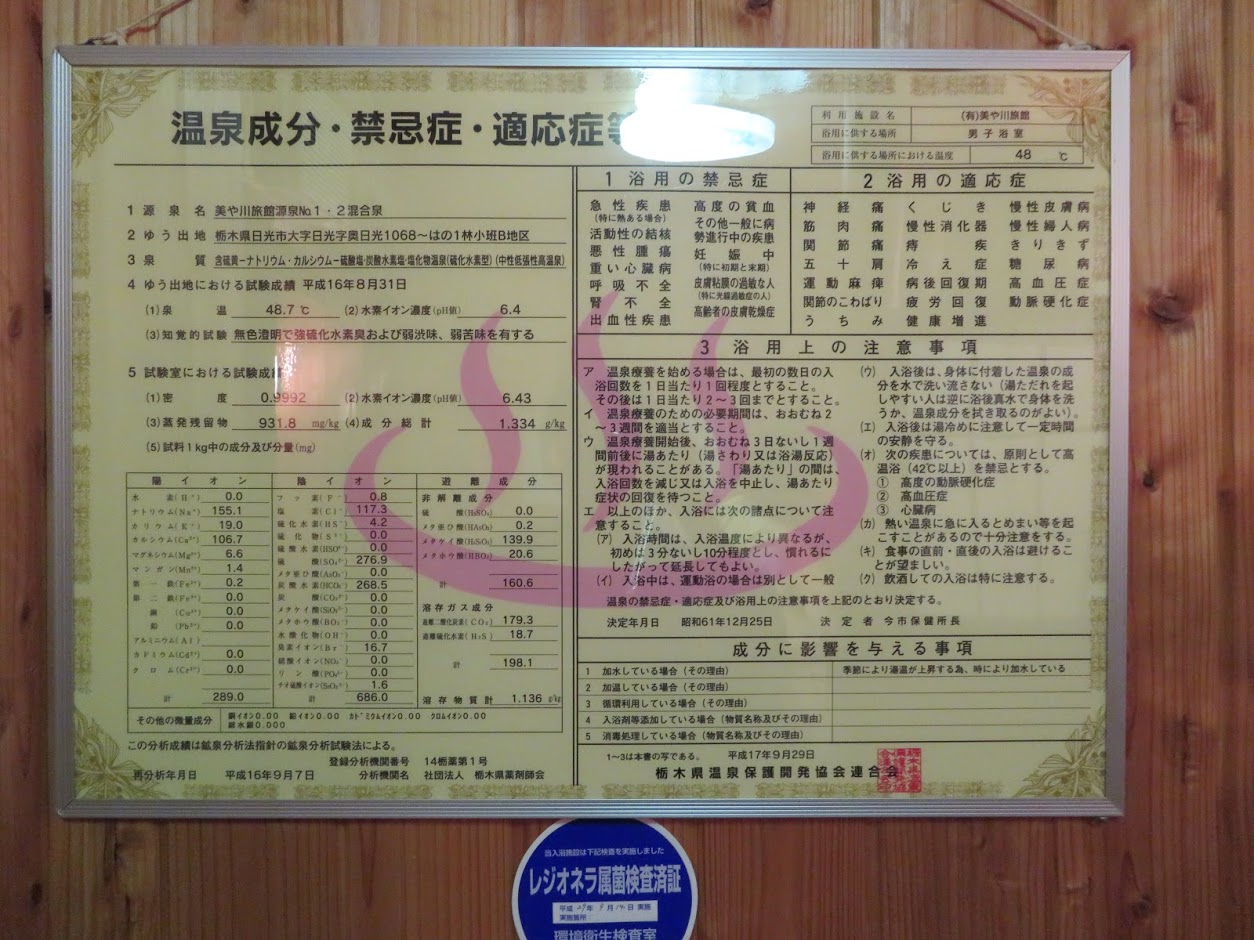 温泉成分・禁忌症・適応症等
利用施設名 (有)美や川旅館
浴用に供する場所 男子浴室
浴用に供する場所における温度 48 ℃
1 源泉名 美や川旅館源泉№1・2混合泉
2 ゆう出地 栃木県日光市大字日光字奥日光1068～はの1林小班B地区
3 泉質 含硫黄ーナトリウム・カルシウムー硫酸塩・炭酸水素塩・塩化物温泉(硫化水素型)(中性低張性高温泉)
4 ゆう出地における試験成績 平成16年8月31日
(1)泉温 48.7 ℃ (2)水素イオン濃度(pH値) 6.4
(3)知覚的試験 無色澄明で強硫化水素臭および弱渋味、弱苦味を有する
5 試験室における試験成績
(1)密度 0.9992 (2)水素イオン濃度(pH値) 6.43
(3)蒸発残留物 931.8 mg/kg (4)成分総計 1.334 g/kg
(5)試料1kg中の成分及び分量(mg)
陽イオン
水素(H⁺) 0.0
ナトリウム(Na⁺) 155.1
カリウム(K⁺) 19.0
カルシウム(Ca²⁺) 106.7
マグネシウム(Mg²⁺) 6.6
マンガン(Mn²⁺) 1.4
第一鉄(Fe²⁺) 0.2
第二鉄(Fe³⁺) 0.0
銅(Cu²⁺) 0.0
鉛(Pb²⁺) 0.0
アルミニウム(Al)
カドミウム(Cd²⁺) 0.0
クロム(Cr³⁺) 0.0
計 289.0
陰イオン
フッ素(F⁻) 0.8
塩素(Cl⁻) 117.3
硫化水素(HS⁻) 4.2
硫化物(S²⁻) 0.0
硫酸水素(HSO₄⁻) 0.0
硫酸(SO₄²⁻) 276.9
メタ亜ひ酸(AsO₂⁻) 0.0
炭酸水素(HCO₃⁻) 268.5
炭酸(CO₃²⁻) 0.0
メタケイ酸(SiO₃²⁻) 0.0
メタホウ酸(BO₂⁻) 0.0
水酸化物(OH⁻) 0.0
臭素イオン(Br⁻) 16.7
硝酸イオン(NO₃⁻) 0.0
リン酸(PO₄³⁻) 0.0
チオ硫酸イオン(S₂O₃²⁻) 1.6
計 686.0
遊離成分
非解離成分
硫酸(H₂SO₄) 0.0
メタ亜ひ酸(HAsO₂) 0.2
メタケイ酸(H₂SiO₃) 139.9
メタホウ酸(HBO₂) 20.6
計 160.6
溶存ガス成分
遊離二酸化炭素(CO₂) 179.3
遊離硫化水素(H₂S) 18.7
計 198.1
溶存物質計 1.136 g/kg
その他の微量成分 銅イオン0.00 鉛イオン0.00 カドミウムイオン0.00 クロムイオン0.00
総水銀0.000
この分析成績は鉱泉分析法指針の鉱泉分析試験法による。
登録分析機関番号 14栃薬第1号
再分析年月日 平成16年9月7日 分析機関名 社団法人 栃木県薬剤師会
1 浴用の禁忌症
急性疾患
(特に熱ある場合)
活動性の結核
悪性腫瘍
重い心臓病
呼吸不全
腎不全
出血性疾患
高度の貧血
その他一般に病
勢進行中の疾患
妊娠中
(特に初期と末期)
皮膚粘膜の過敏な人
(特に光線過敏症の人)
高齢者の皮膚乾燥症
2 浴用の適応症
神経痛 くじき 慢性皮膚病
筋肉痛 慢性消化器 慢性婦人病
関節痛 痔疾 きりきず
五十肩 冷え症 糖尿病
運動麻痺 病後回復期 高血圧症
関節のこわばり 疲労回復 動脈硬化症
うちみ 健康増進
3 浴用上の注意事項
ア 温泉療養を始める場合は、最初の数日の入
浴回数を1日当たり1回程度とすること。
その後は1日当たり2～3回までとすること。
イ 温泉療養のための必要期間は、おおむね2
～3週間を適当とすること。
ウ 温泉療養開始後、おおむね3日ないし1週
間前後に湯あたり(湯さわり又は浴湯反応)
が現われることがある。「湯あたり」の間は、
入浴回数を減じ又は入浴を中止し、湯あたり
症状の回復を待つこと。
エ 以上のほか、入浴には次の諸点について注
意すること。
(ア) 入浴時間は、入浴温度により異なるが、
初めは3分ないし10分程度とし、慣れるに
したがって延長してもよい。
(イ) 入浴中は、運動浴の場合は別として一般
(ウ) 入浴後は、身体に付着した温泉の成
分を水で洗い流さない(湯ただれを起
しやすい人は逆に浴後真水で身体を洗
うか、温泉成分を拭き取るのがよい)。
(エ) 入浴後は湯冷めに注意して一定時間
の安静を守る。
(オ) 次の疾患については、原則として高
温浴(42℃以上)を禁忌とする。
① 高度の動脈硬化症
② 高血圧症
③ 心臓病
(カ) 熱い温泉に急に入るとめまい等を起
こすことがあるので十分注意をする。
(キ) 食事の直前・直後の入浴は避けるこ
とが望ましい。
(ク) 飲酒しての入浴は特に注意する。
温泉の禁忌症・適応症及び浴用上の注意事項を上記のとおり決定する。
決定年月日 昭和61年12月25日 決定者 今市保健所長
成分に影響を与える事項
1 加水している場合(その理由) 季節により湯温が上昇する為、時により加水している
2 加温している場合(その理由)
3 循環利用している場合(その理由)
4 入浴剤等添加している場合(物質名称及びその理由)
5 消毒処理している場合(物質名称及びその理由)
1～3は本書の写である。 平成17年9月29日
栃木県温泉保護開発協会連合会
当入浴施設は下記検査を実施しました
レジオネラ属菌検査済証
平成29年9月14日 実施
実施箇所：
環境衛生検査室